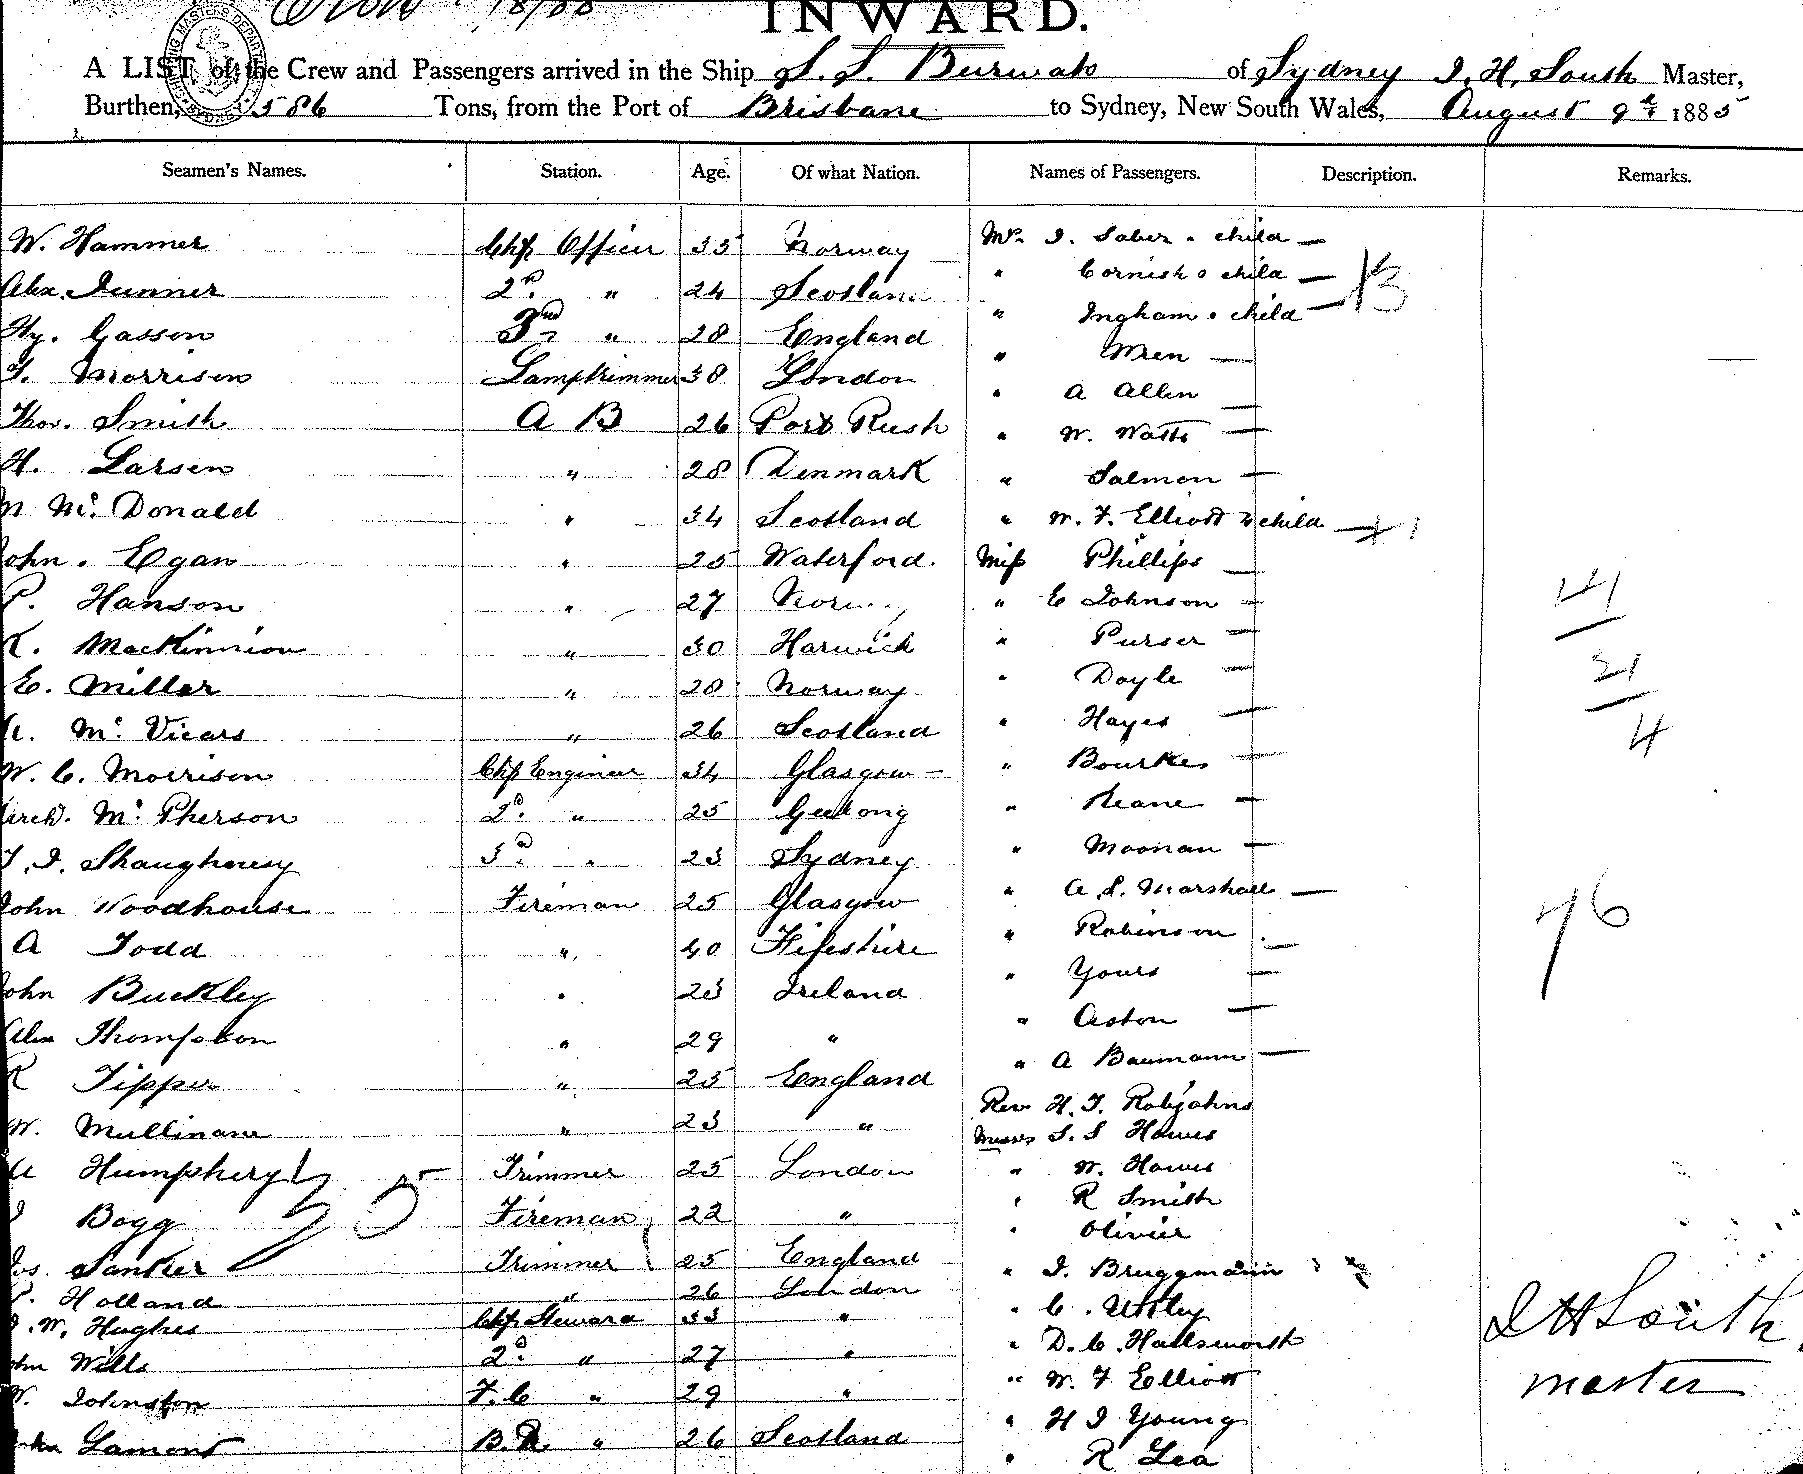 INWARD.
A LIST of the Crew and Passengers arrived in the Ship S. S. Burwah of Sydney J. H. South Master,
Burthen, 586 Tons, from the Port of Brisbane to Sydney, New South Wales, August 9th 1885
Seamen's Names. Station. Age. Of what Nation. Names of Passengers. Description. Remarks.
W. Hammer Chf Officer 35 Norway Mrs. J. Saber & child
Alex. Gunner 2nd " 24 Scotland " Cornish & child 13
Hy. Casson 3rd " 28 England " Ingham & child
Morrison Lamptrimmer 38 London " Wren
Thos. Smith A B 26 Port Rush " A Allen
H. Larsen " 28 Denmark " W. Watts
McDonald " 34 Scotland " Salmon
John. Egan " 25 Waterford. " W. F. Elliott & child
P. Hanson " 27 Norway Miss Phillips
K. MacKinnion " 30 Harwick " E Johnson
E. Miller " 28 Norway " Purser
Mc Vicars " 26 Scotland " Doyle
W. C. Morrison Chf Engineer 34 Glasgow " Hayes
Arch. Mc Pherson 2d. " 25 Geelong " Bourke
T. J. Shaughnesy 3d. " 23 Sydney " Keane
John Woodhouse Fireman 25 Glasgow " Moonan
A Todd " 40 Fifeshire " A. S. Marshall
John Buckley " 23 Ireland " Robinson
Alex Thompson " 29 " " Yours
R Tipper " 25 England " Aston
W. Mullinane " 23 " " A Baumann
Humphery Trimmer 25 London Rev H. T. Robjohns
Bogg Fireman 22 " Messrs S. S Hawes
Sanker Trimmer 25 England " W. Hawes
Holland " 26 London " R Smith
W. Hughes Chf Steward 33 " " Olivier
John Wills 2d. " 27 " " J. Bruggmann
W. Johnston F. C " 29 " " C. Uttley
John Lamont B. R. " 26 Scotland " D. C. Hallsworth
" W. F Elliott
" H J Young
" R Lea
21
4
76
J H South
master